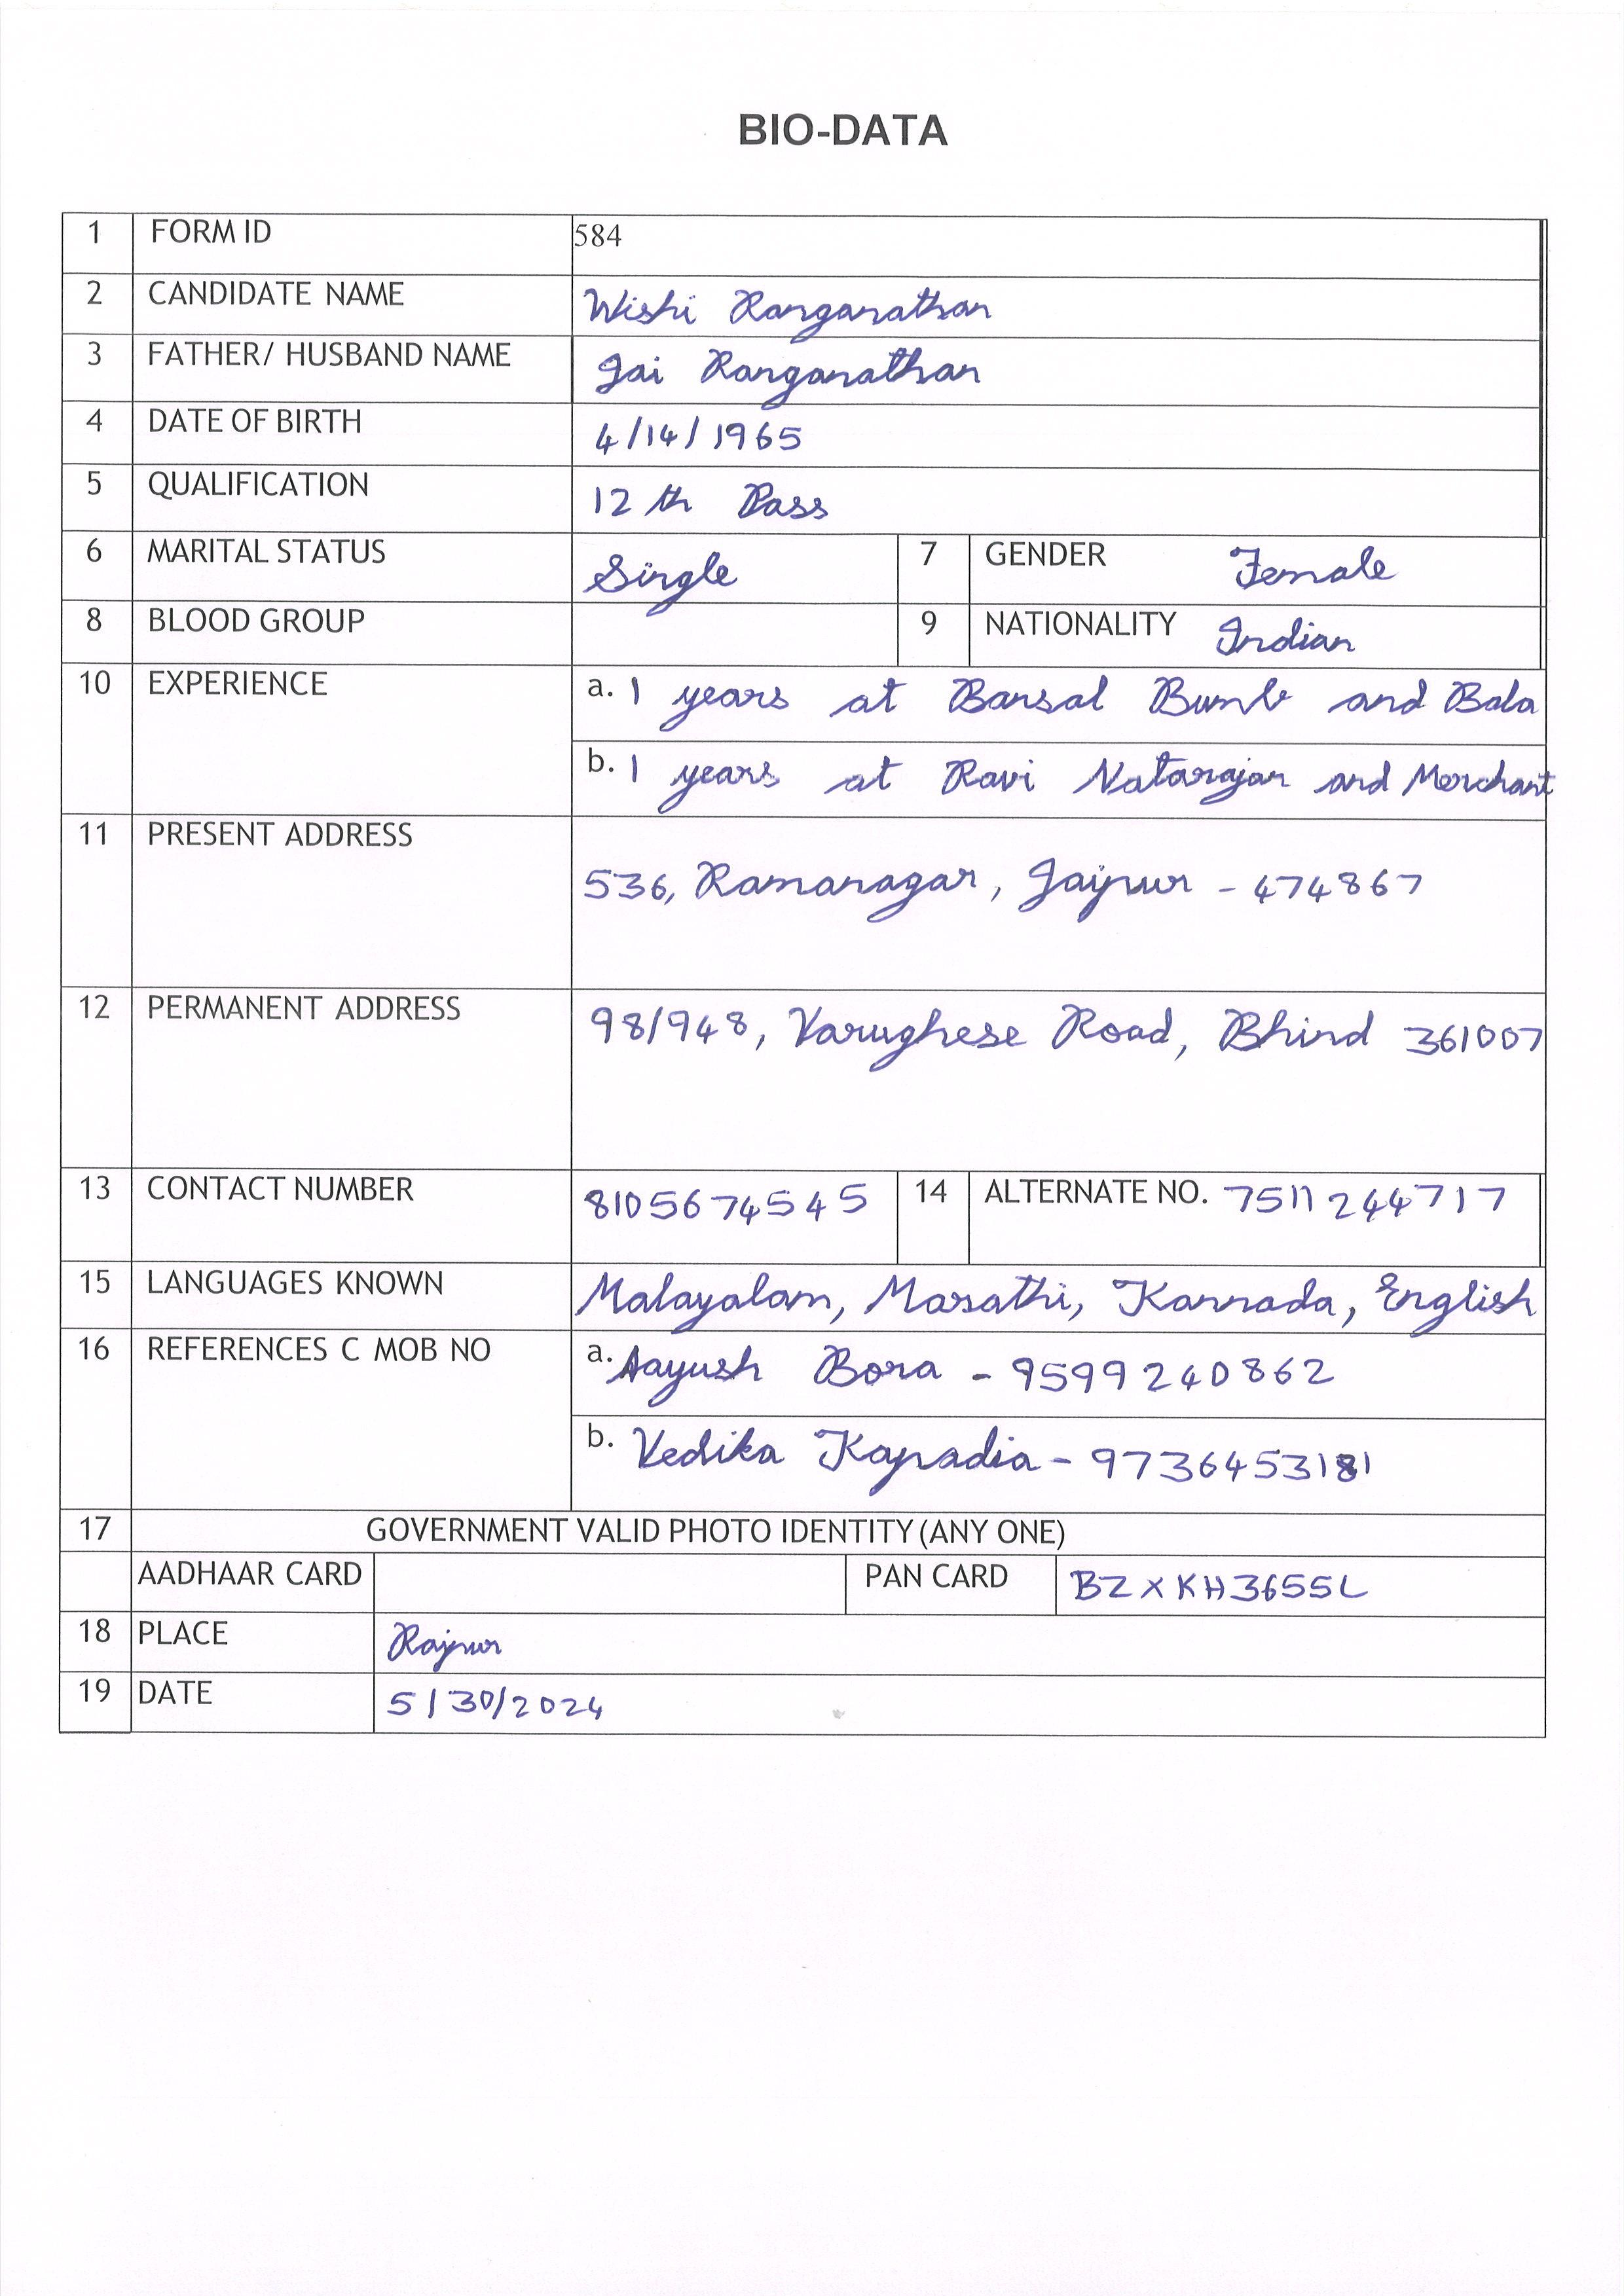 BIO-DATA
1 FORM ID 584
2 CANDIDATE NAME Wishi Ranganathan
3 FATHER/ HUSBAND NAME Jai Ranganathan
4 DATE OF BIRTH 4/14/1965
5 QUALIFICATION 12th Pass
6 MARITAL STATUS Single 7 GENDER Female
8 BLOOD GROUP 9 NATIONALITY Indian
10 EXPERIENCE a. 1 years at Bansal Bumb and Bala
b. 1 years at Ravi Natarajan and Merchant
11 PRESENT ADDRESS 536, Ramanagar, Jaipur - 474867
12 PERMANENT ADDRESS 98/948, Varughese Road, Bhind 361007
13 CONTACT NUMBER 8105674545 14 ALTERNATE NO. 7511244717
15 LANGUAGES KNOWN Malayalam, Marathi, Kannada, English
16 REFERENCES C MOB NO a. Aayush Bora - 9599240862
b. Vedika Kapadia - 9736453181
17 GOVERNMENT VALID PHOTO IDENTITY (ANY ONE)
AADHAAR CARD PAN CARD BZXKH3655L
18 PLACE Rajpur
19 DATE 5/30/2024